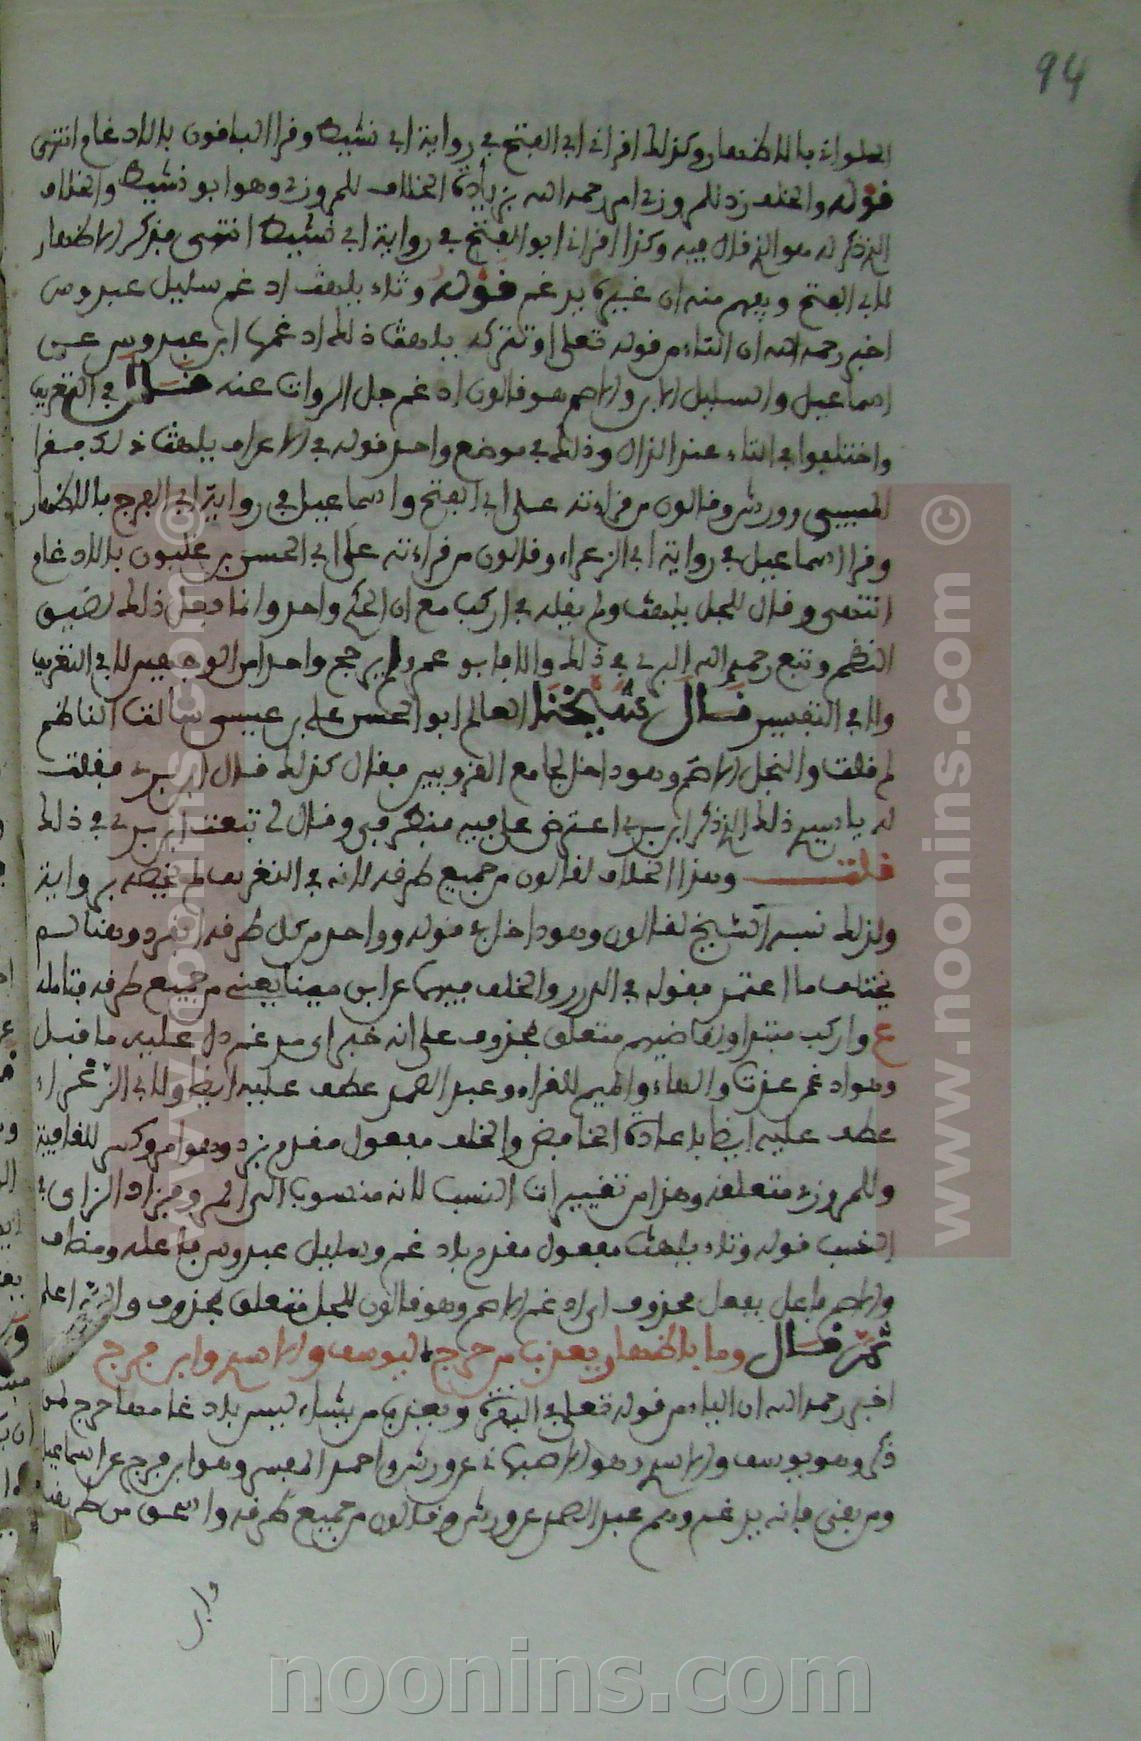 94
الحلواني بالاظهار وكذلك اقراني ابي الفتح في رواية ابي نشيط وقرا الباقون بالادغام انتهى
قوله والخلف زد للمروزي امر رحمه الله بزيادة الخلاف للمروزي وهو ابو نشيط والخلاف
الذي ذكر له هو الذي قال فيه وكذا اقراني ابو الفتح في رواية ابي نشيط انتهى فذكر الاظهار
لابي الفتح ويفهم منه ان غيره يدغم قوله وثاء يلهث ادغم سليل عبدوس
اخبر رحمه الله ان الثاء من قوله تعلى او تتركه يلهث ذلك ادغمها ابن عبدوس عن
اسماعيل والسليل الابن والاصم هو قالون ادغم جل الروات عنه قال في التعريف
واختلفوا في الثاء عند الذال وذلك في موضع واحد قوله في الاعراف يلهث ذلك فقرا
المسيبي وورش وقالون من قراءته على ابي الفتح واسماعيل في رواية ابي الفرج بالاظهار
وقرا اسماعيل في رواية ابي الزعراء وقالون من قراءته على ابي الحسن بن غلبون بالادغام
انتهى وقال للجل يلهث ولم يقله في اركب مع ان الحكم واحد وانما فعل ذلك لضيق
النظم وتبع رحمه الله البري في ذلك والا فابو عمرو لم يرجح واحدا من الوجهين لا في التعريف
ولا في التفسير قال شيخنا العالم ابو الحسن علي بن عيسى سالت الناظم
لم قلت والنجل الاصم وهو داخل لجامع القزويين فقال كذلك قال ابن بري فقلت
له يا سيدي ذلك الذي ذكر ابن بري اعترض عليه فيه فنظر في وقال لي تبعت ابن بري في ذلك
قلت وهذا الخلاف لقالون من جميع طرقه لانه في التعريف لم يخصه برواية
ولذلك نسبه الشيخ لقالون وهو داخل في قوله وواحد من كل طرقه انفرد وهنا لسم
يختلف ما اعتمد بقوله في الدرر والخلف فيهما عن ابن مينا يعني من جميع طرقه فتامله
ع واركب مبتدا وتعاضيهم متعلق بمحذوف على انه خبر اي مدغم دل عليه ما قبل
وهو ادغم عذت والهاء والميم للقراء وعبد الصمد عطف عليه ايضا ولابي الزعراء
عطف عليه ايضا باعادة الخافض والخلف مفعول مقدم بزد وهو امر وكسر للقافية
وللمروزي متعلقه وهذا من تغييرات النسب لانه منسوب الى المرو فزاد الزاي في
النسب قوله وثاء يلهث مفعول مقدم بادغم وسليل عبدوس فاعله ومضاف
والاصم فاعل بفعل محذوف اي ادغم الاصم وهو قالون للجل متعلق بمحذوف والله اعلم
ثم قال وما باظهار يعذب من حرج ليوسف والاسدي وابن فرج
اخبر رحمه الله ان الباء من قوله تعلى في البقرة ويعذب من يشاء ليس بادغامها حرج لمن
ذكر وهو يوسف والاسدي وهو الاصبهاني عن ورش واحمد المفسر وهو ابن فرج عن اسماعيل
ومن بقي فانه يدغم وهم عبد الصمد عن ورش وقالون من جميع طرقه واسحق من طريقيه
وابن
www.noonins.com ©
www.noonins.com ©
noonins.com